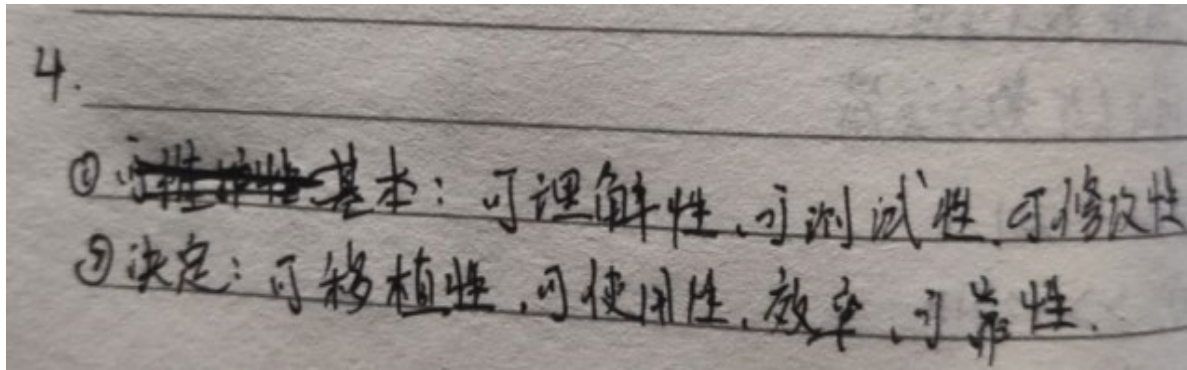 4.
① 基本：可理解性、可测试性、可修改性
② 决定：可移植性、可使用性、效率、可靠性.